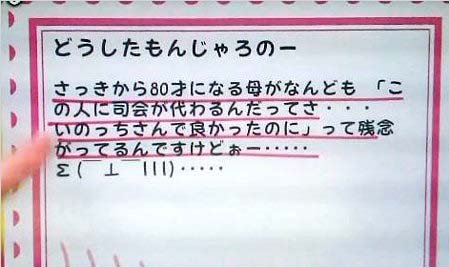 どうしたもんじゃろのー
さっきから80才になる母がなんども 「こ
の人に司会が代わるんだってさ・・・
いのっちさんで良かったのに」って残念
がってるんですけどぉー‥‥‥
Σ(￣⊥￣lll)‥‥‥